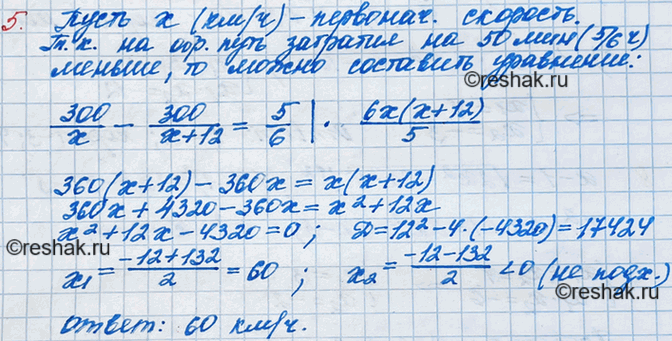 5. Пусть x (км/ч) - первонач. скорость.
Т.к. на обр. путь затратил на 50 мин (5/6 ч)
меньше, то можно составить уравнение:
300/x - 300/(x+12) = 5/6 | · 6x(x+12)/5
©reshak.ru
360(x+12) - 360x = x(x+12)
360x + 4320 - 360x = x² + 12x
x² + 12x - 4320 = 0 ; D = 12² - 4·(-4320) = 17424
©reshak.ru
x₁ = (-12+132)/2 = 60 ; x₂ = (-12-132)/2 < 0 (не подх.)
©reshak.ru
Ответ: 60 км/ч.